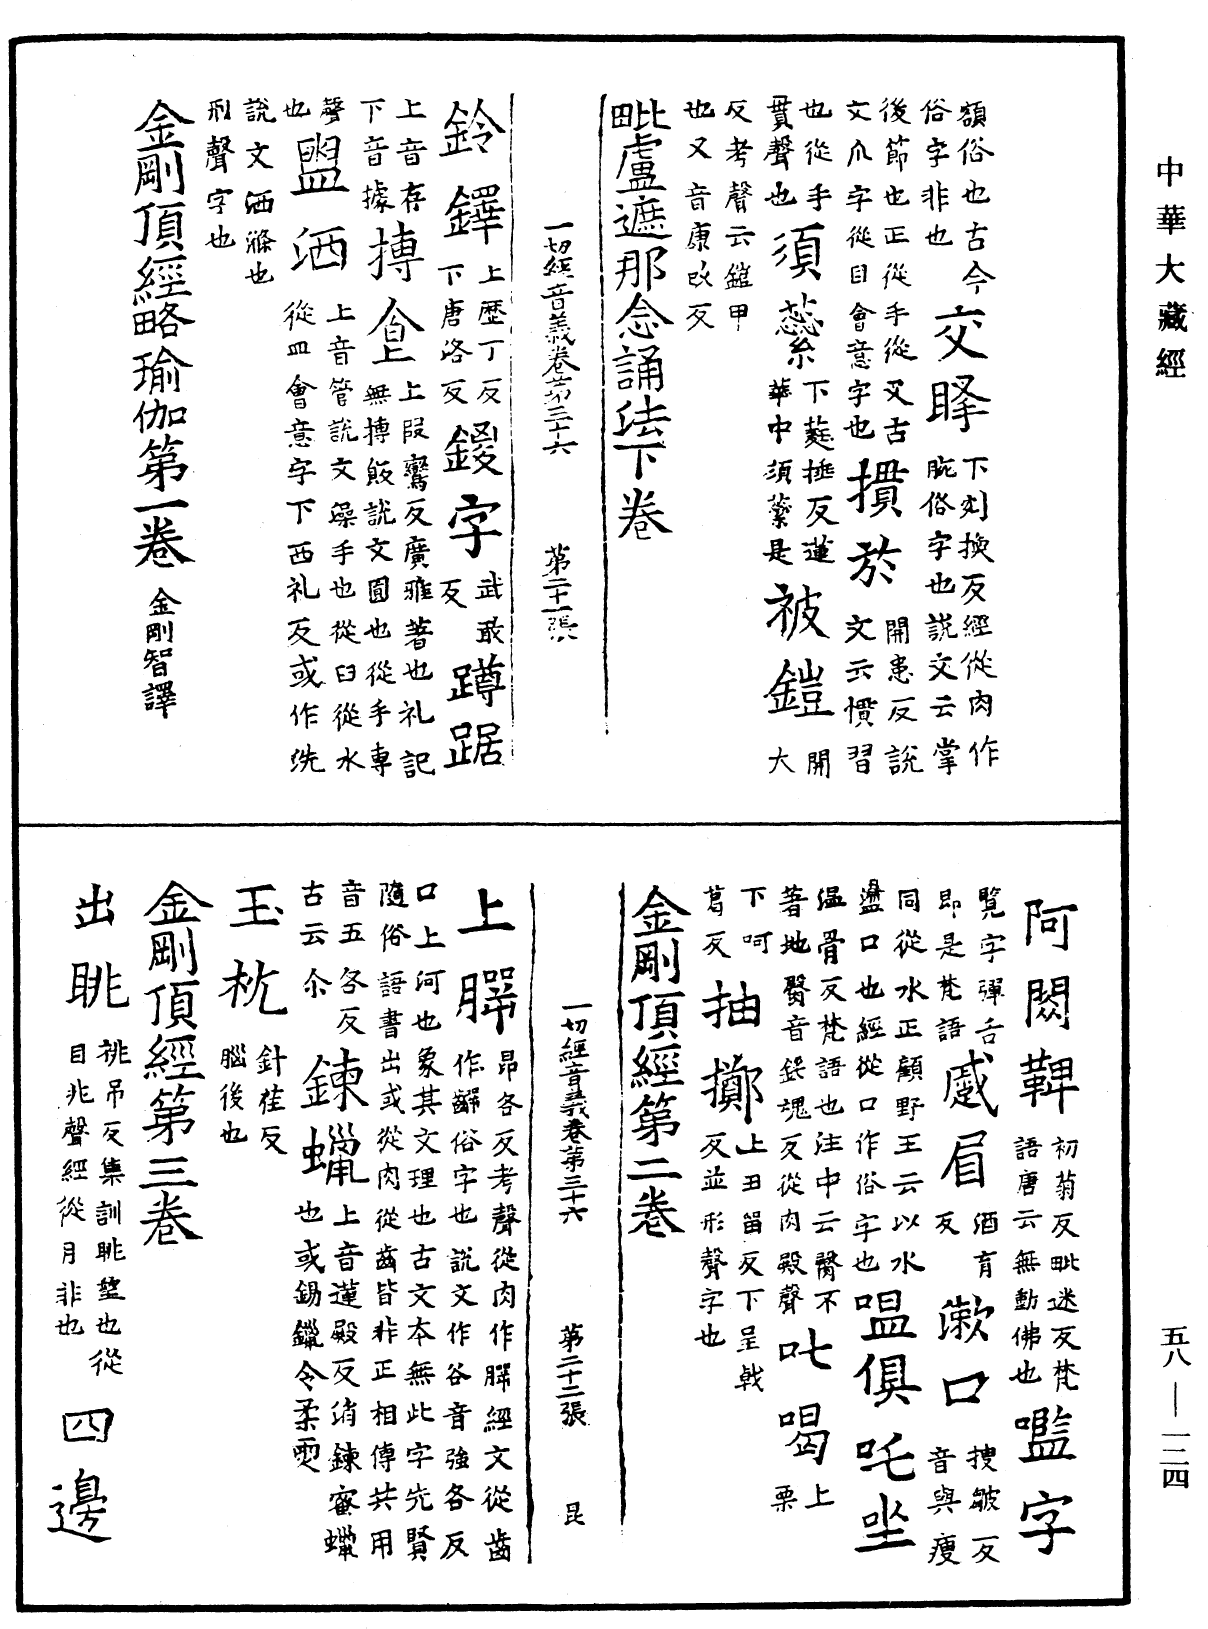 中華大藏經
額俗也古今
俗字非也
交睪
下刻換反經從肉作
腕俗字也說文云掌
後節也正從手從叉古
文爪字從目會意字也
摜於
開患反說
文云慣習
也從手
貫聲也
須蘂
下蕤捶反蓮
華中須蘂是
被鎧
開
大
反考聲云鎧甲
也又音康改反
毗盧遮那念誦法下卷
一切經音義卷第三十六 第二十一張
鈴鐸
上歷丁反
下唐洛反
鑁字
武敢
反
蹲踞
上音存
下音據
摶食
上段鸞反廣雅著也礼記
無摶飯說文圓也從手專
聲
也
盥洒
上音管說文澡手也從臼從水
從皿會意字下西礼反或作洗
說文洒滌也
形聲字也
金剛頂經略瑜伽第一卷 金剛智譯
阿閦鞞
初菊反毗迷反梵
語唐云無動佛也
嚂字
覽字彈舌
即是梵語
蹙眉
酒育
反
漱口
搜皺反
音與瘦
同從水正顧野王云以水
盪口也經從口作俗字也
嗢俱吒坐
溫骨反梵語也注中云臀不
著地臀音鈍魂反從肉殿聲
叱喝
上
栗
下呵
葛反
抽擲
上丑留反下呈戟
反並形聲字也
金剛頂經第二卷
一切經音義卷第三十六 第二十二張 昆
上腭
昂各反考聲從肉作腭經文從齒
作齶俗字也說文作谷音強各反
口上河也象其文理也古文本無此字先賢
隨俗語書出或從肉從齒皆非正相傳共用
音五各反
古云尒
鍊蠟
上音蓮殿反消鍊蜜蠟
也或錫鑞令柔耎
玉枕
針荏反
腦後也
金剛頂經第三卷
出眺
祧吊反集訓眺望也從
目兆聲經從月非也
四邊
五八—一二四